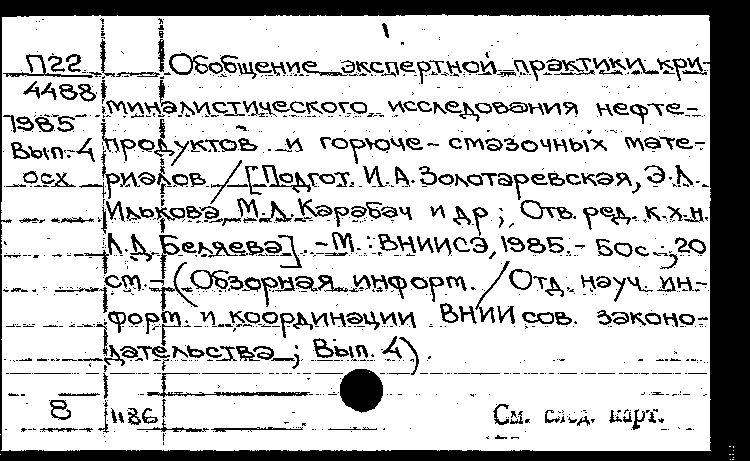 1
П22
4488
1985
Вып. 4
осх
Обобщение экспертной практики кри-
миналистического исследования нефте-
продуктов и горюче-смазочных мате-
риалов / [Подгот. И.А. Золотаревская, Э.Л.
Илькова, М.Л. Карабач и др.; Отв. ред. к.х.н.
Л.Д. Беляева]. - М.: ВНИИСЭ, 1985. - 50с.; 20
см. - (Обзорная информ. / Отд. науч. ин-
форм. и координации ВНИИ сов. законо-
дательства; Вып. 4).
8
1186
См. след. карт.